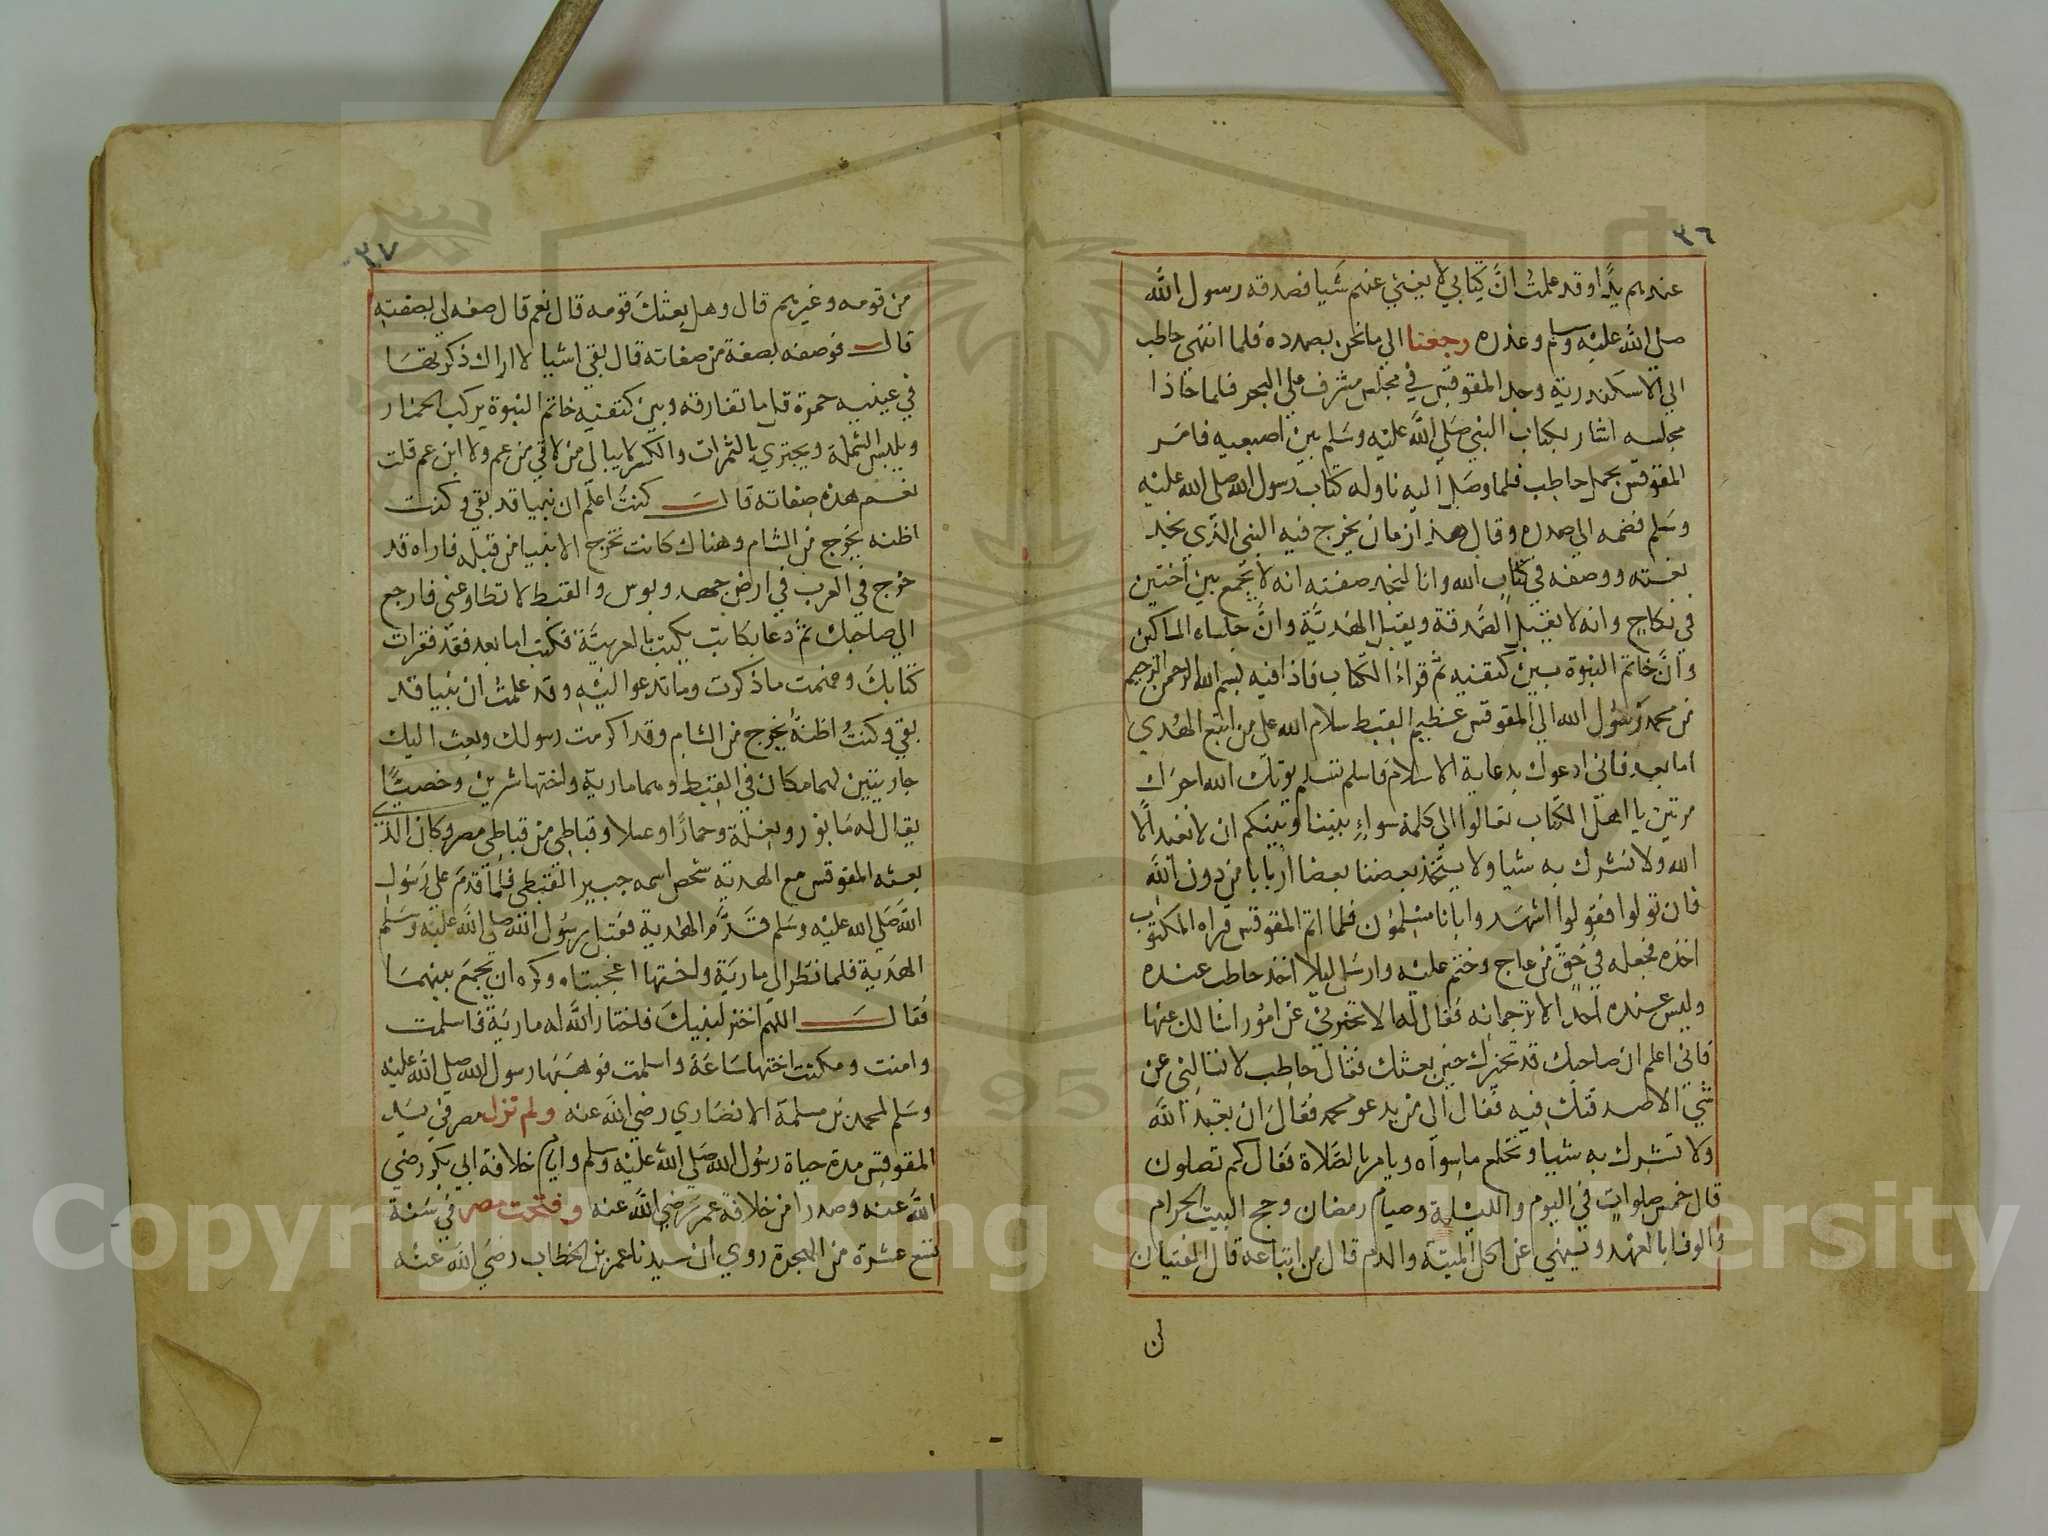 ٣٦
عندهم يدًا وقد علمتُ انَّ كِتابي لا يغني عنهم شَيا فصدقه رسول اللَّه
صلى اللَّه عليْه وسلم وعذره رجعنا الي ما نحن بصدده فلما انتهى حاطب
الي الاسكندرية وجد المقوقس في مجلس مشرف على البحر فلما حاذا
مجلسه اشار بكتاب النبي صَلى اللَّه عليْه وسَلم بين اصبعيه فامَر
المقوقس بحمل حاطب فلما وصَل اليه ناوله كتاب رسول الله صلى الله عليْه
وسَلم فضمه الي صدره وقال هذا زمان يخرج فيه النبي الذي نجد
نعته ووصفه في كتاب الله وانا لنجد صفته انه لا يجمع بين اختين
في نكاح وانه لا يقبل الصَّدقة ويقبل الهديَّة وانَّ جلساه المساكين
وانَّ خاتم النبوة بين كتفيه ثم قراءَ الكتاب فاذا فيه بسم الله الرحمن الرحيم
من محمد رَسُول الله الي المقوقس عظيم القبط سلام الله على من اتبع الهُدي
اما بعد فاني ادعوك بدعاية الاسلام فاسلم تسلم يوتك الله اجرَك
مرتين يا اهل الكتاب تعالوا الي كلمة سواءٍ بيننا وبينكم ان لا نعبد الا
الله ولا نشرك به شيا ولا يتخذ بعضنا بعضا اربابا من دون اللَّه
فان تولوا فقولوا اشهَدوا بانا مسْلمون فلما اتم المقوقس قراه المكتوب
اخذه فجعله في حُقّ من عاج وختم عليْه وارسَل ليلا اخذ حاطب عنده
وليس عنده احد الا ترجمانه فقال له الا تخبرني عن امُور اسالك عنها
فاني اعلم ان صاحبك قد تخيرك حين بعثك فقال حاطب لا تسالني عن
شيء الا صدقتك فيه فقال الي من يدعو محمد فقالَ ان يعبدَ اللَّه
ولا تشرك به شيا وتخلع ما سواه ويامر بالصَّلاة فقال كم تصلوك
قال خمس صلوات في اليوم والليْلة وصيام رمضان وحج البيت الحرام
والوفا بالعهد وينهي عن اكل الميتة والدم قال من اتباعه قال الفتيان
من
٣٧
من قومه وغيرهم قال وهل بعثك قومه قال نعم قال صفه لي بصفته
قال فوصفه بصفة من صفاته قال بقي اشيا لا اراك ذكرتهَا
في عينيه حمرة قل ما تفارقه وبين كتفيه خاتم النبوة يركب الحمار
ويلبس الشملة ويجتزي بالثمرات والكسر لا يبالي من لاقي من عم ولا ابن عم قلت
نعم هذه صفاته قال كنتُ اعلم ان نبيا قد بقي وكنت
اظنه يخرج من الشام وهناك كانت تخرج الانبيا من قبله فاراه قد
خرج في العرب في ارض جهد وبوس والقبط لا تطاوعني فارجع
الي صاحبك ثم دعا بكاتب يكتب بالعربيَّة فكتب اما بعد فقد قرات
كتابك وفهمت ما ذكرت وما تدعوا اليْه وقد علمتُ ان نبيا قد
بقي وكنتُ اظنهُ يخرج من الشام وقد اكرمت رسولك وبعث اليك
جاريتين لهما مكان في القبط وهما مارية واختها شرين وخصيًّا
يقال له مابور وبغلة وحمارًا وعسلا وقباطي من قباطي مصر وكان الذي
بعثه المقوقس مع الهدية شخص اسمه جبير القبطي فلما قدم على رسول
اللَّه صَلى الله عليْه وسَلم قدَّم الهدية فقبل رسُول الله صلى اللَّه عليْه وسَلم
الهدية فلما نظر الي مارية واختها اعجبتاه وكره ان يجمَع بينهمَا
فقال اللهم اختر لنبيك فاختار اللَّه له مارية فاسلمت
وامنت ومكثت اختها سَاعَة واسلمت فوهبَها رسول الله صلى اللَّه عليْه
وسَلم لمحمد بن مسلمة الانصَاري رضي اللَّه عنه ولم تزل مصر في يَد
المقوقس مدة حياة رسُول الله صَلى اللَّه عليْه وسلم وايام خلافة ابي بكر رضي
اللَّه عنه وصدرا من خلافة عمر رَضي اللَّه عنه وفتحت مصر في سَنة
تسع عشرة من الهجرة روي ان سيدنا عمر بن الخطاب رضيَ اللَّه عنْه
Copyright © King Saud University
1957